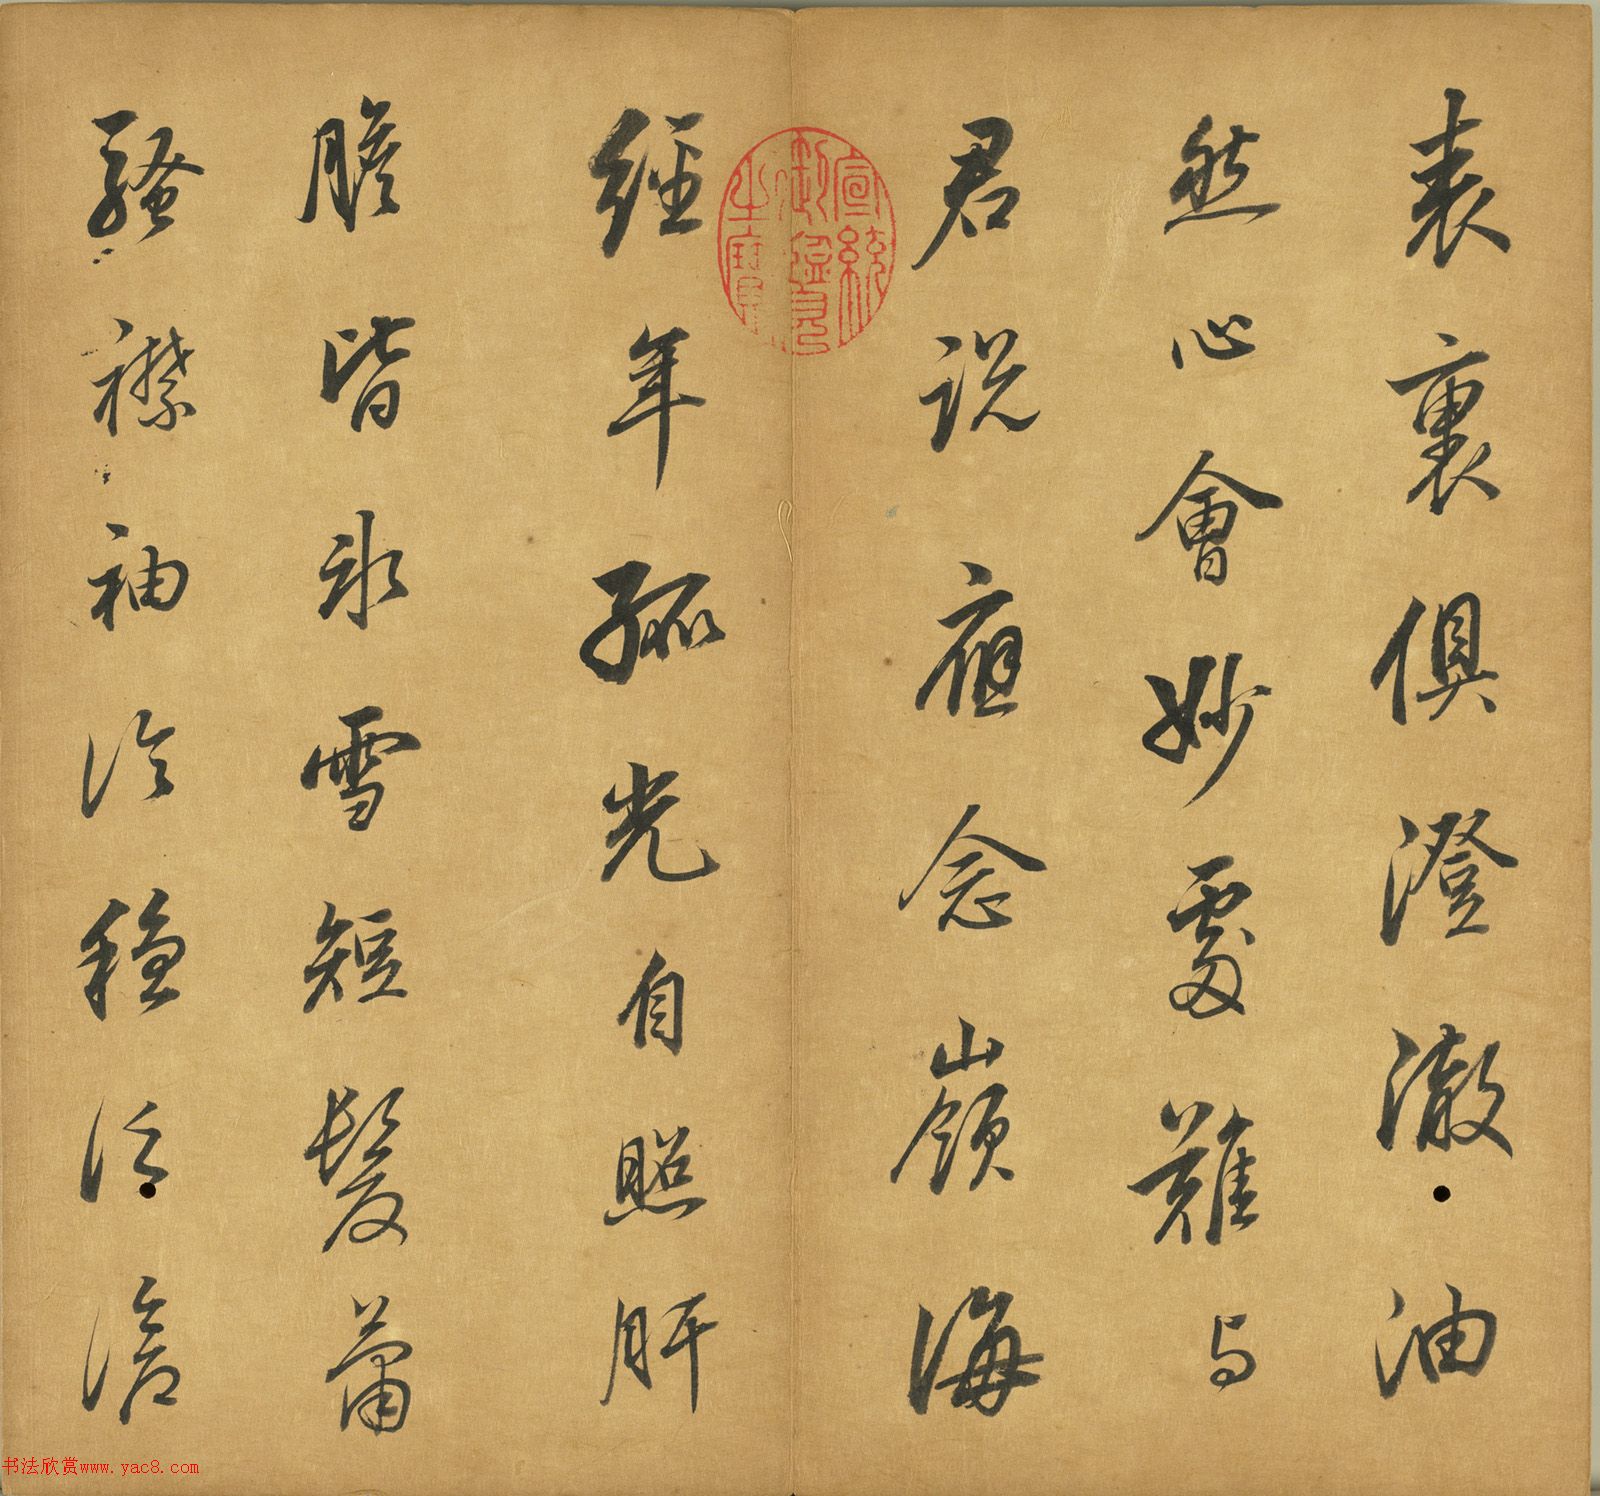 表裏俱澄澈油
然心會妙處難与
君説應念嶺海
宣統御覽之寶
經年孤光自照肝
膽皆冰雪短髮蕭
騷襟袖冷穩泛滄
书法欣赏www.yac8.com